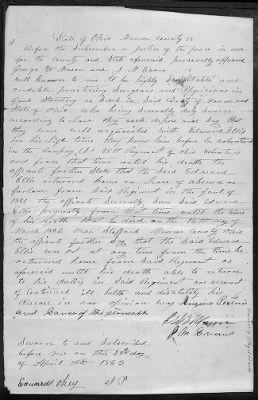 State of Ohio Monroe County ss
Before the Subscriber a Justice of the peace in and
for the County and State aforesaid personally appeared
George W Mason and J M Evans
Well Known to me to be highly respectable and
creditable practicing Surgeons and Physicians in
Good Standing in said in said County of Monroe and
State of Ohio who being severally duly sworn
according to law they each depose and say that
they were well acquainted with Edward Ellis
in his life time they knew him before he volunteered
in Company Regiment of Ohio Volunteers
and from that time until his death the
affiants further State that the said Edward
Ellis returned home on leave of absence or
furlow from said Regiment in the fall of
1861 the affiants Severally saw Said Edward
Ellis frequently from that time until the time
of his death that he died on the day of
March 1862 near Stafford Monroe County Ohio
the affiants further Say that the said Edward
Ellis was not at any time from the time he
returned home from said Regiment as
aforesaid until his death able to return
to his duties in Said Regiment on account
of Continued ill health and disability his
disease in our opinion was
and Cancer of the stomach
Geo W Mason
J M Evans
Sworn to and Subscribed
before me on this day
of April AD 1863
Edward Okey J P